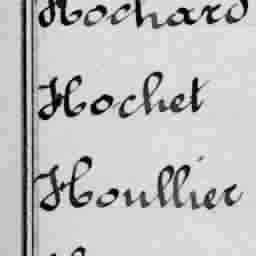 Hochard
Hochet
Houllier